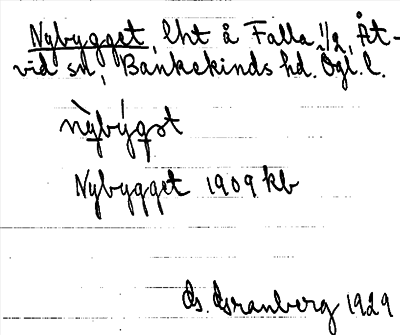 Nybygget, lht å Falla 1/2, Åt-
vid sn, Bankekinds hd. Ögl. l.
nỳbýgət
Nybygget 1909 kb
Cs. Granberg 1929